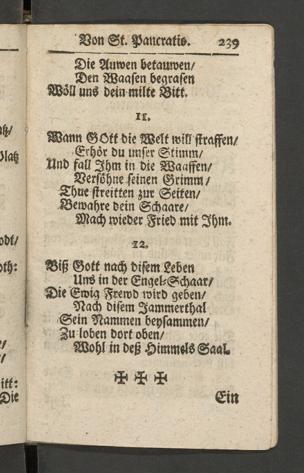 Von St. Pancratis. 239
Die Auwen betauwen/
Den Waasen begrasen
Wöll uns dein milte Bitt.
11.
Wann GOtt die Welt will straffen/
Erhör du unser Stimm/
Und fall Ihm in die Waaffen/
Versöhne seinen Grimm/
Thue streitten zur Seiten/
Bewahre dein Schaare/
Mach wieder Fried mit Ihm.
12.
Biß Gott nach disem Leben
Uns in der Engel-Schaar/
Die Ewig Frewd wird geben/
Nach disem Jammerthal
Sein Nammen beysammen/
Zu loben dort oben/
Wohl in deß Himmels Saal.
Ein